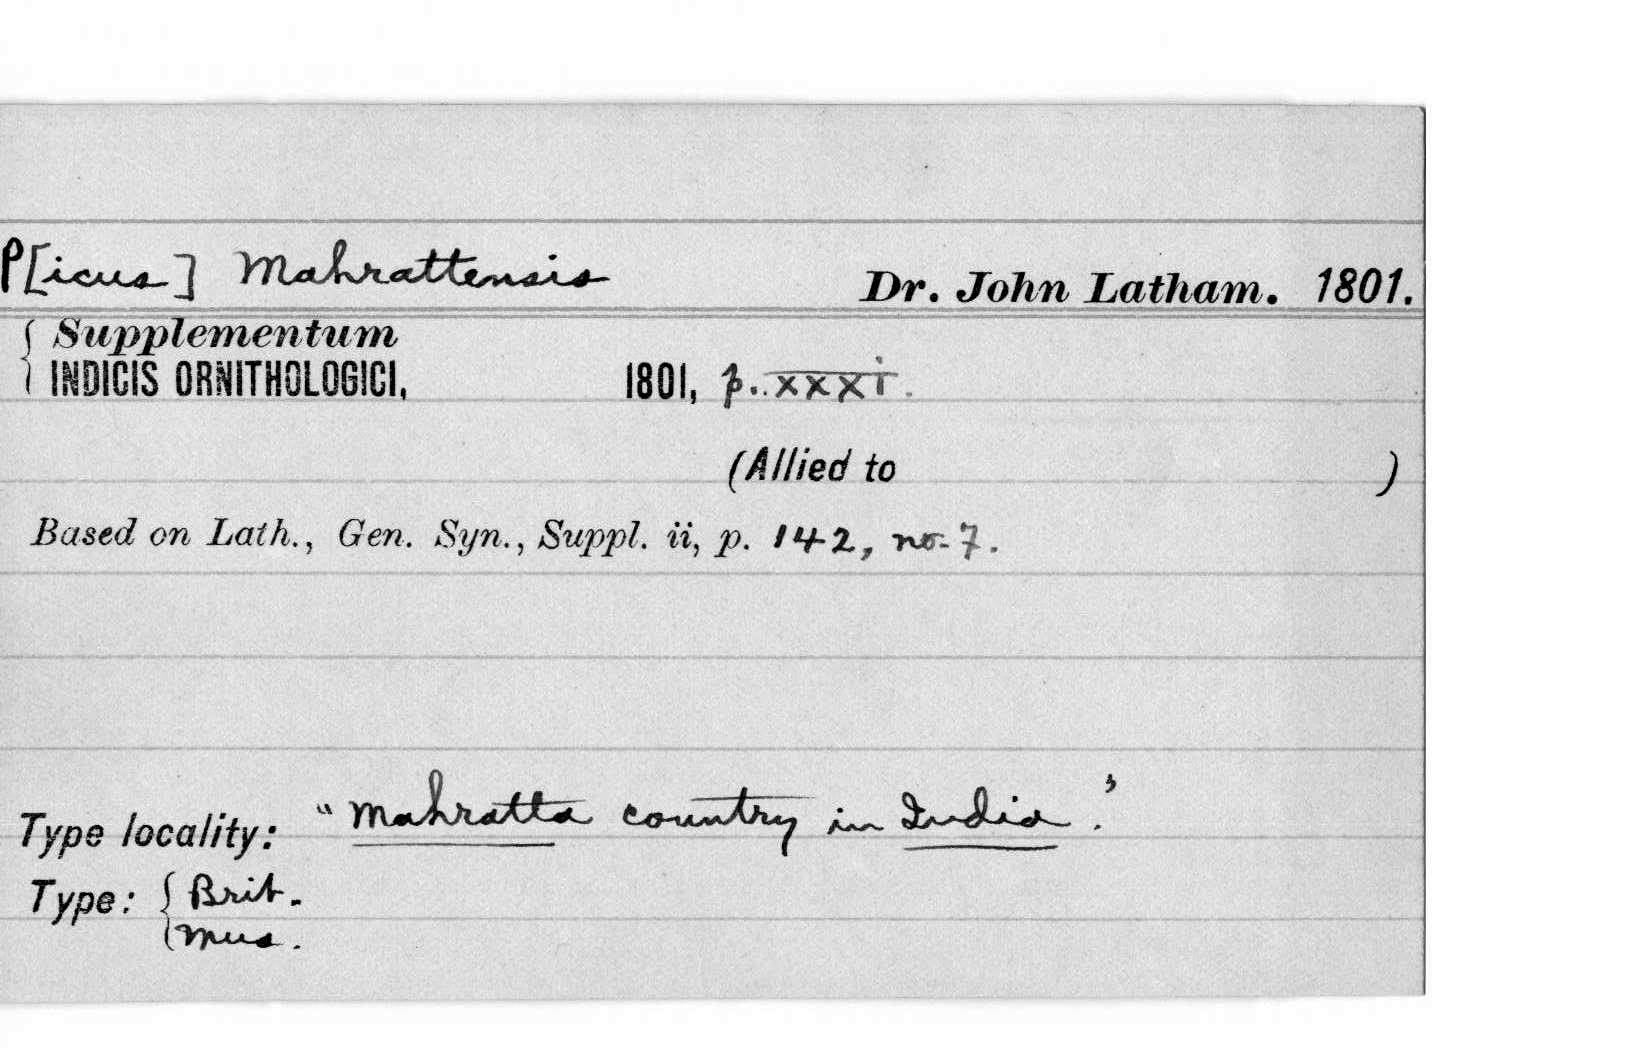 P[icus] Mahrattensis Dr. John Latham. 1801.
{ Supplementum
INDICIS ORNITHOLOGICI, 1801, p. xxxi.
(Allied to )
Based on Lath., Gen. Syn., Suppl. ii, p. 142, no. 7.
Type locality: "Mahratta country in India."
Type: { Brit.
Mus.